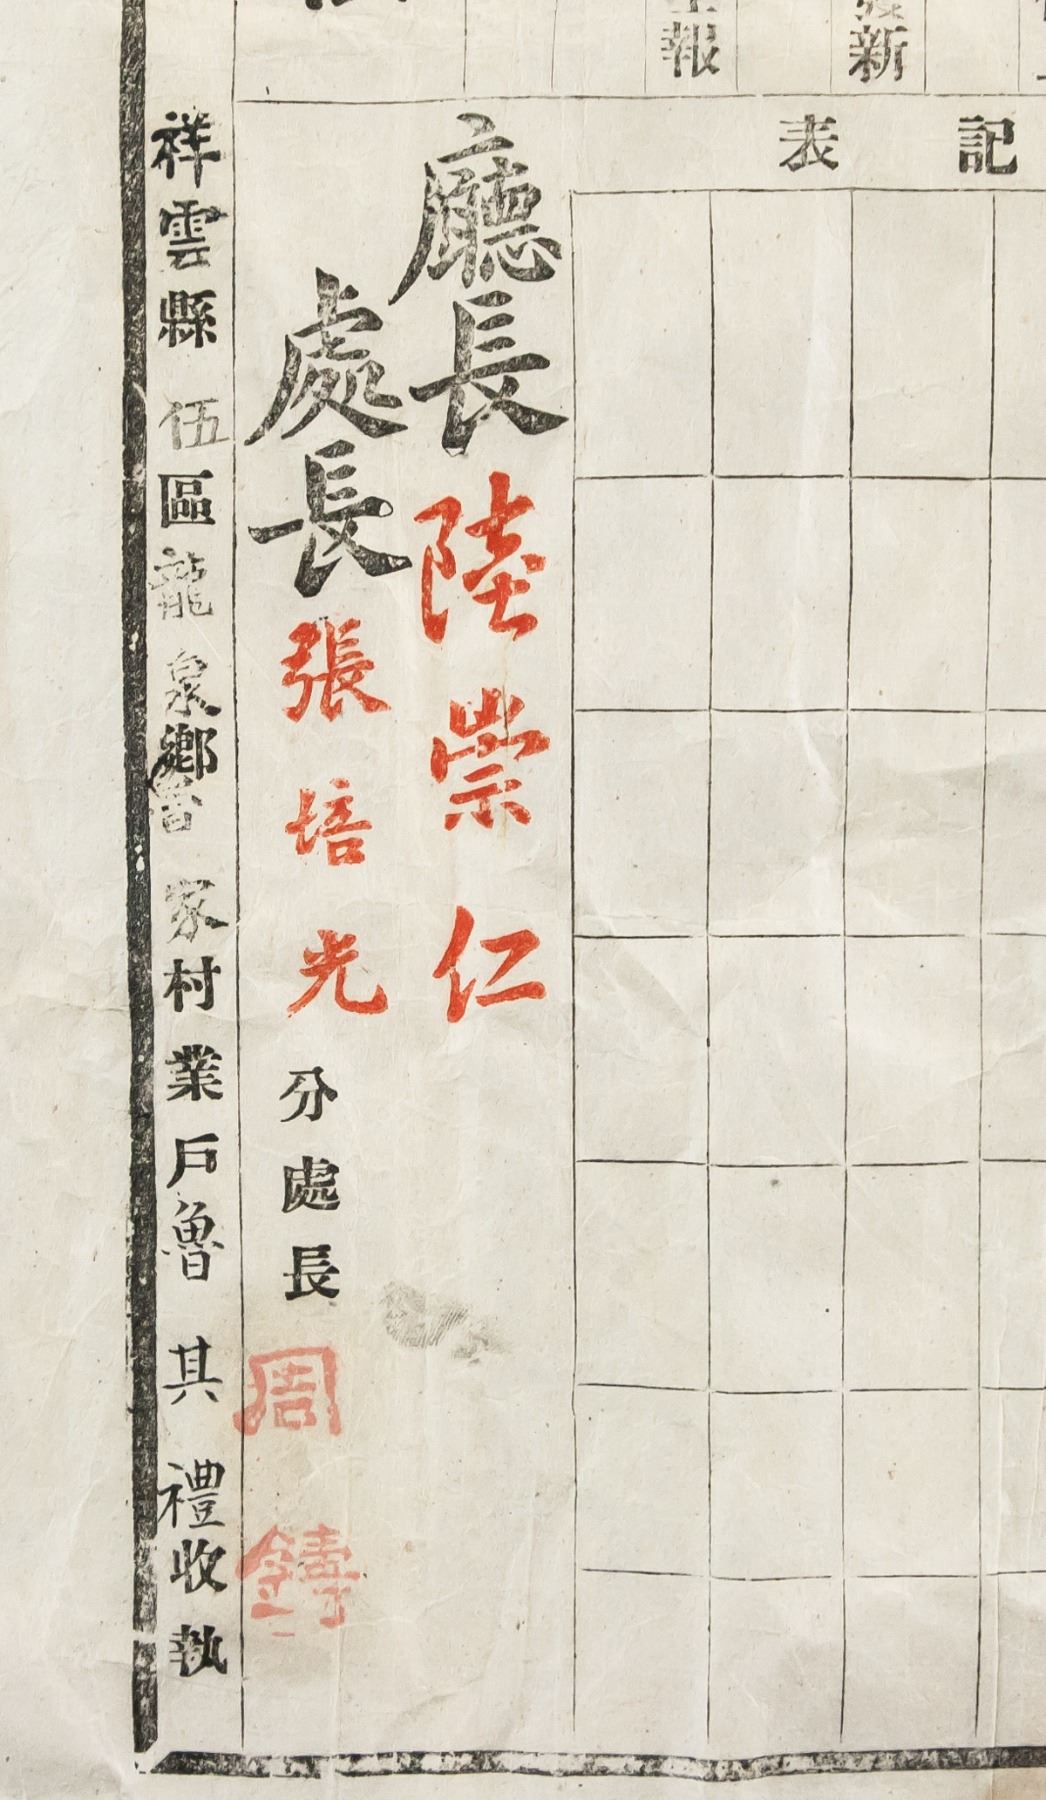 報
新
記表
廳長陸崇仁
處長張培光分處長周鑄
祥雲縣伍區龍泉鄉魯家村業戶魯其禮收執